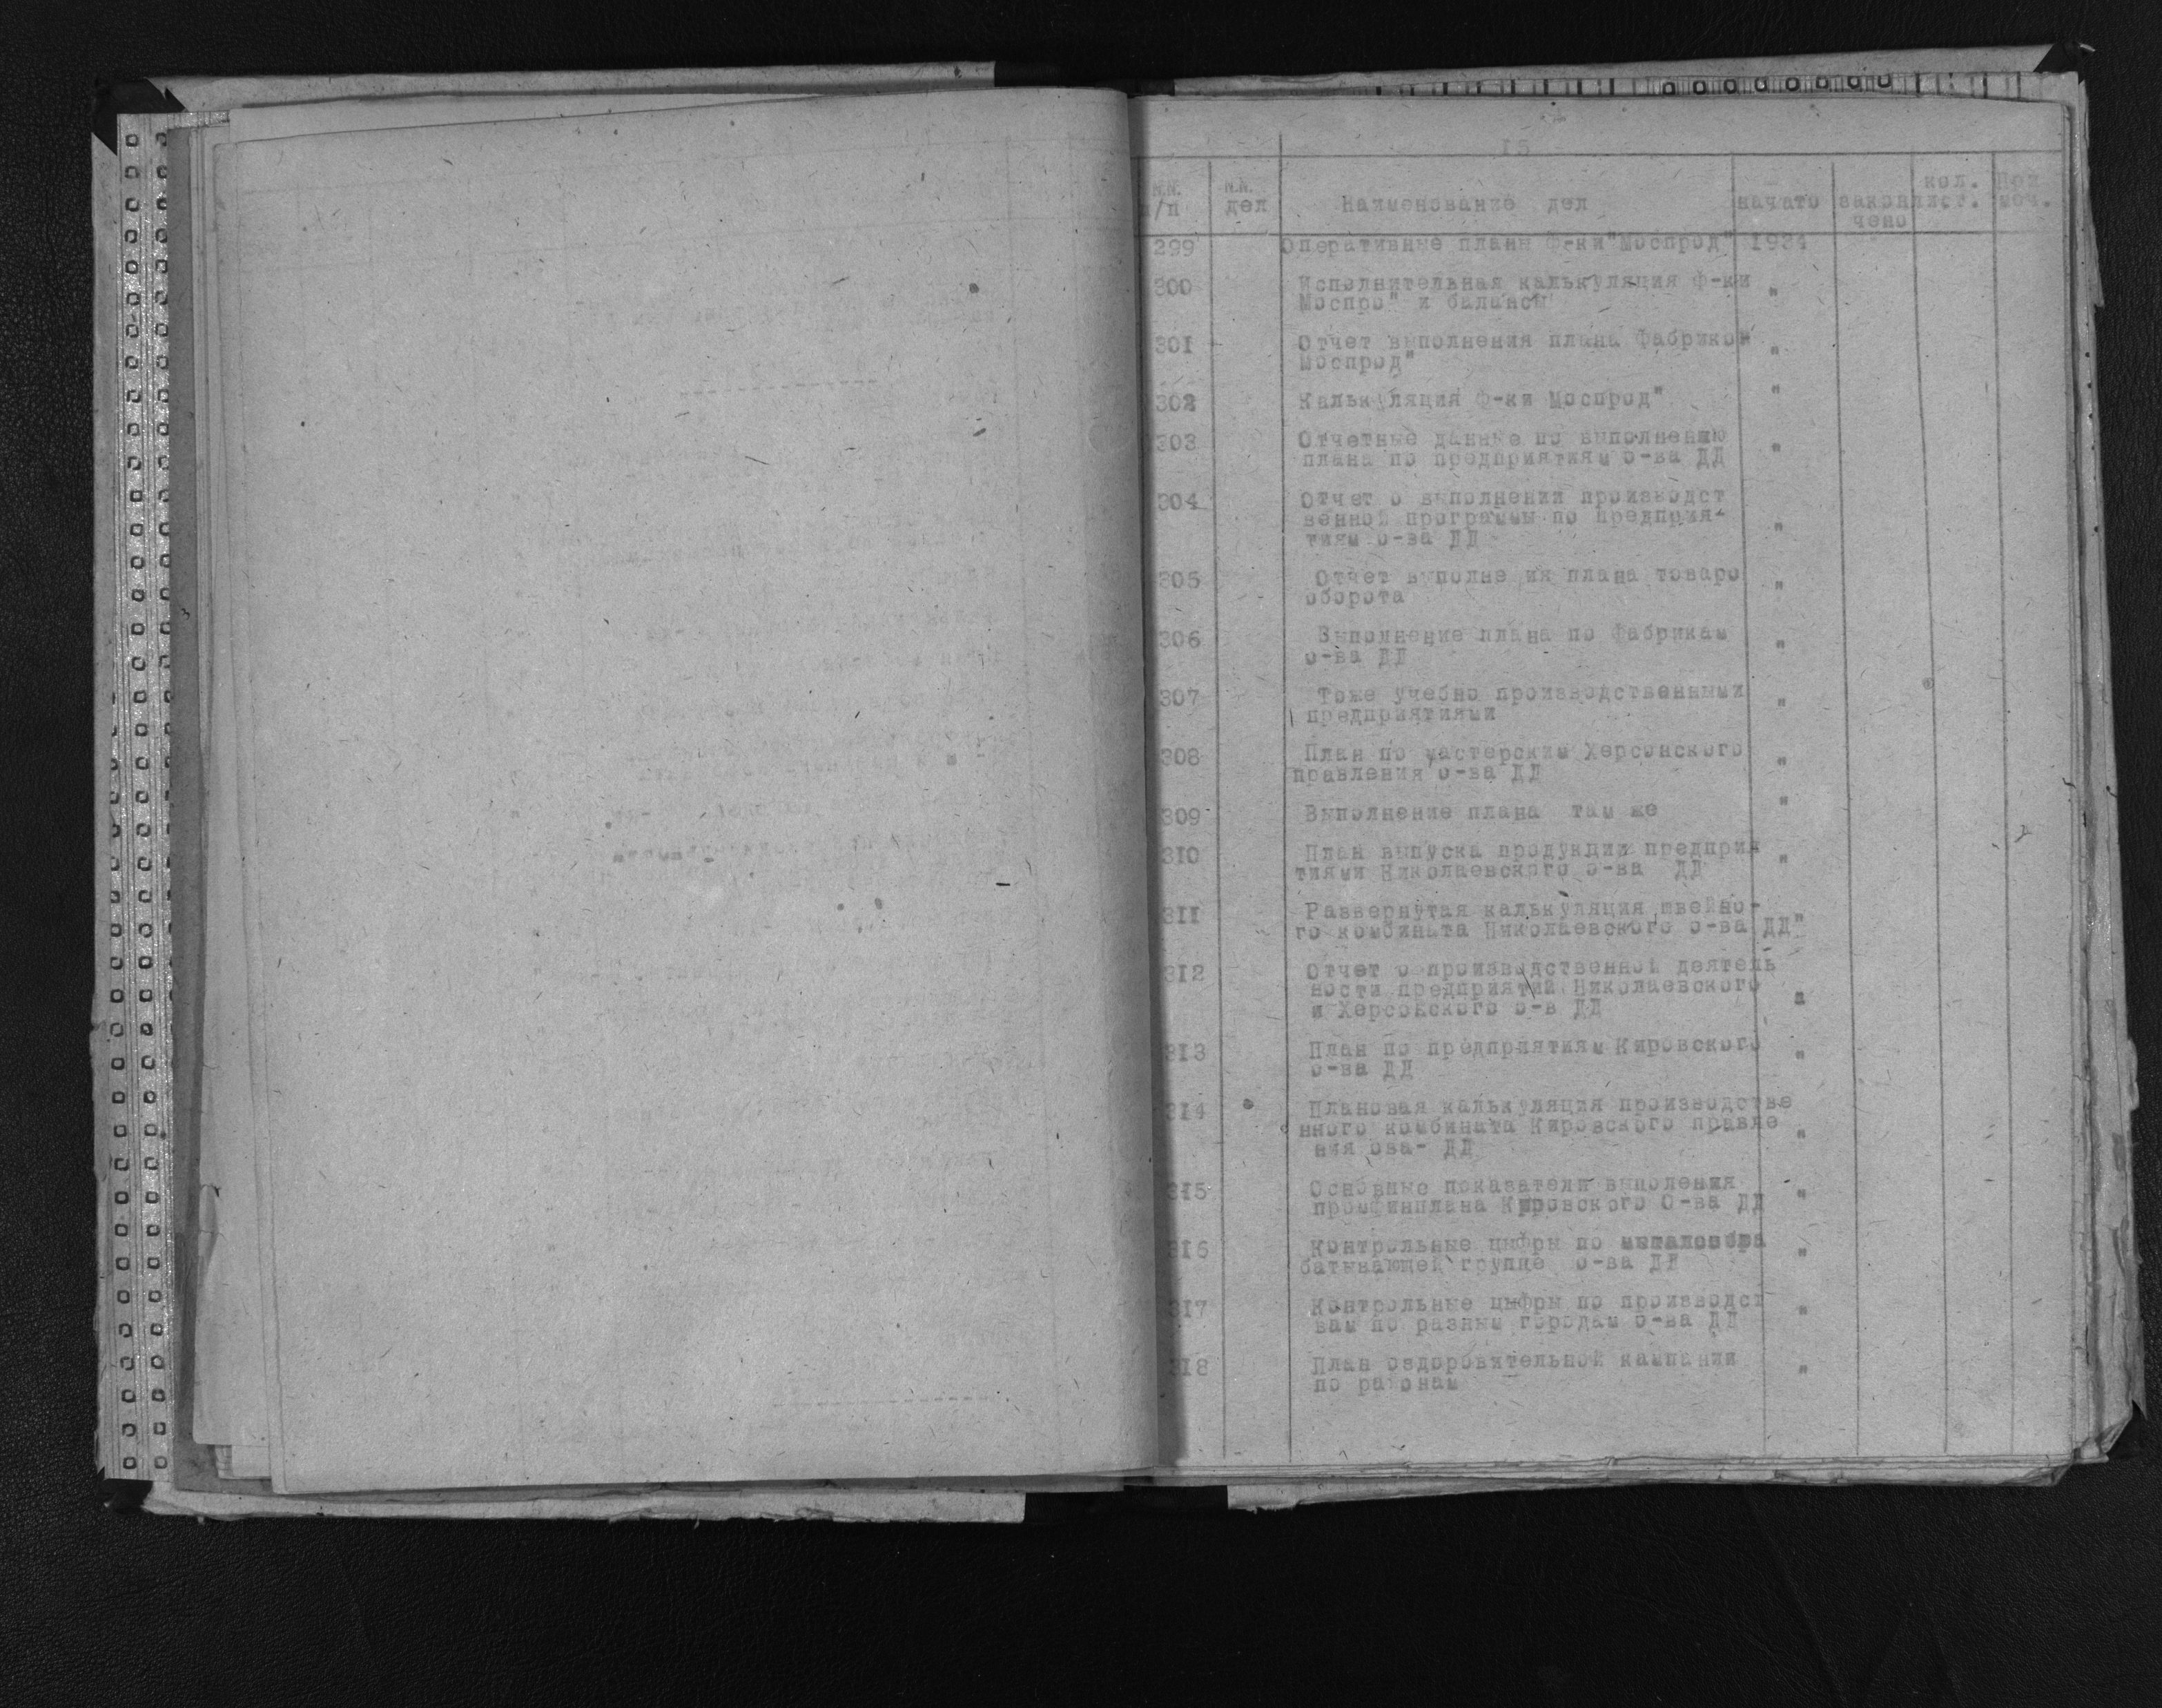 15
N.N. п/п N.N. дел Наименование дел начато закон чено кол. лист. При меч.
299 Оперативные планы Ф-ки "Моспрод" 1934
300 Исполнительная калькуляция ф-ки "
Моспро" и балансы
301 Отчет выполнения плана фабрикой "
Моспрод"
302 Калькуляция Ф-ки Моспрод" "
303 Отчетные данные по выполнению
плана по предприятиям о-ва ДД "
304 Отчет о выполнении производст
венной программы по предприя-
тиям о-ва ДД "
305 Отчет выполне ия плана товаро "
оборота
306 Выполнение плана по фабрикам "
о-ва ДД
307 Тоже учебно производственными "
предприятиями
308 План по мастерским Херсонского "
правления о-ва ДД
309 Выполнение плана там же "
310 План выпуска продукции предприя "
тиями Николаевского о-ва ДД
311 Развернутая калькуляция швейно-
го комбината Николаевского о-ва ДД"
312 Отчет о производственной деятель
ности предприятий Николаевского "
и Херсонского о-в ДД
313 План по предприятиям Кировского "
о-ва ДД
314 Плановая калькуляция производстве
нного комбината Кировского правле "
ния ова- ДД
315 Основные показатели выполения "
промфинплана Кировского О-ва ДД
316 Контрольные цыфры по "
батывающей группе о-ва ДД
317 Контрольные цыфры по производст "
вам по разным городам о-ва ДД
318 План оздоровительной кампании "
по районам